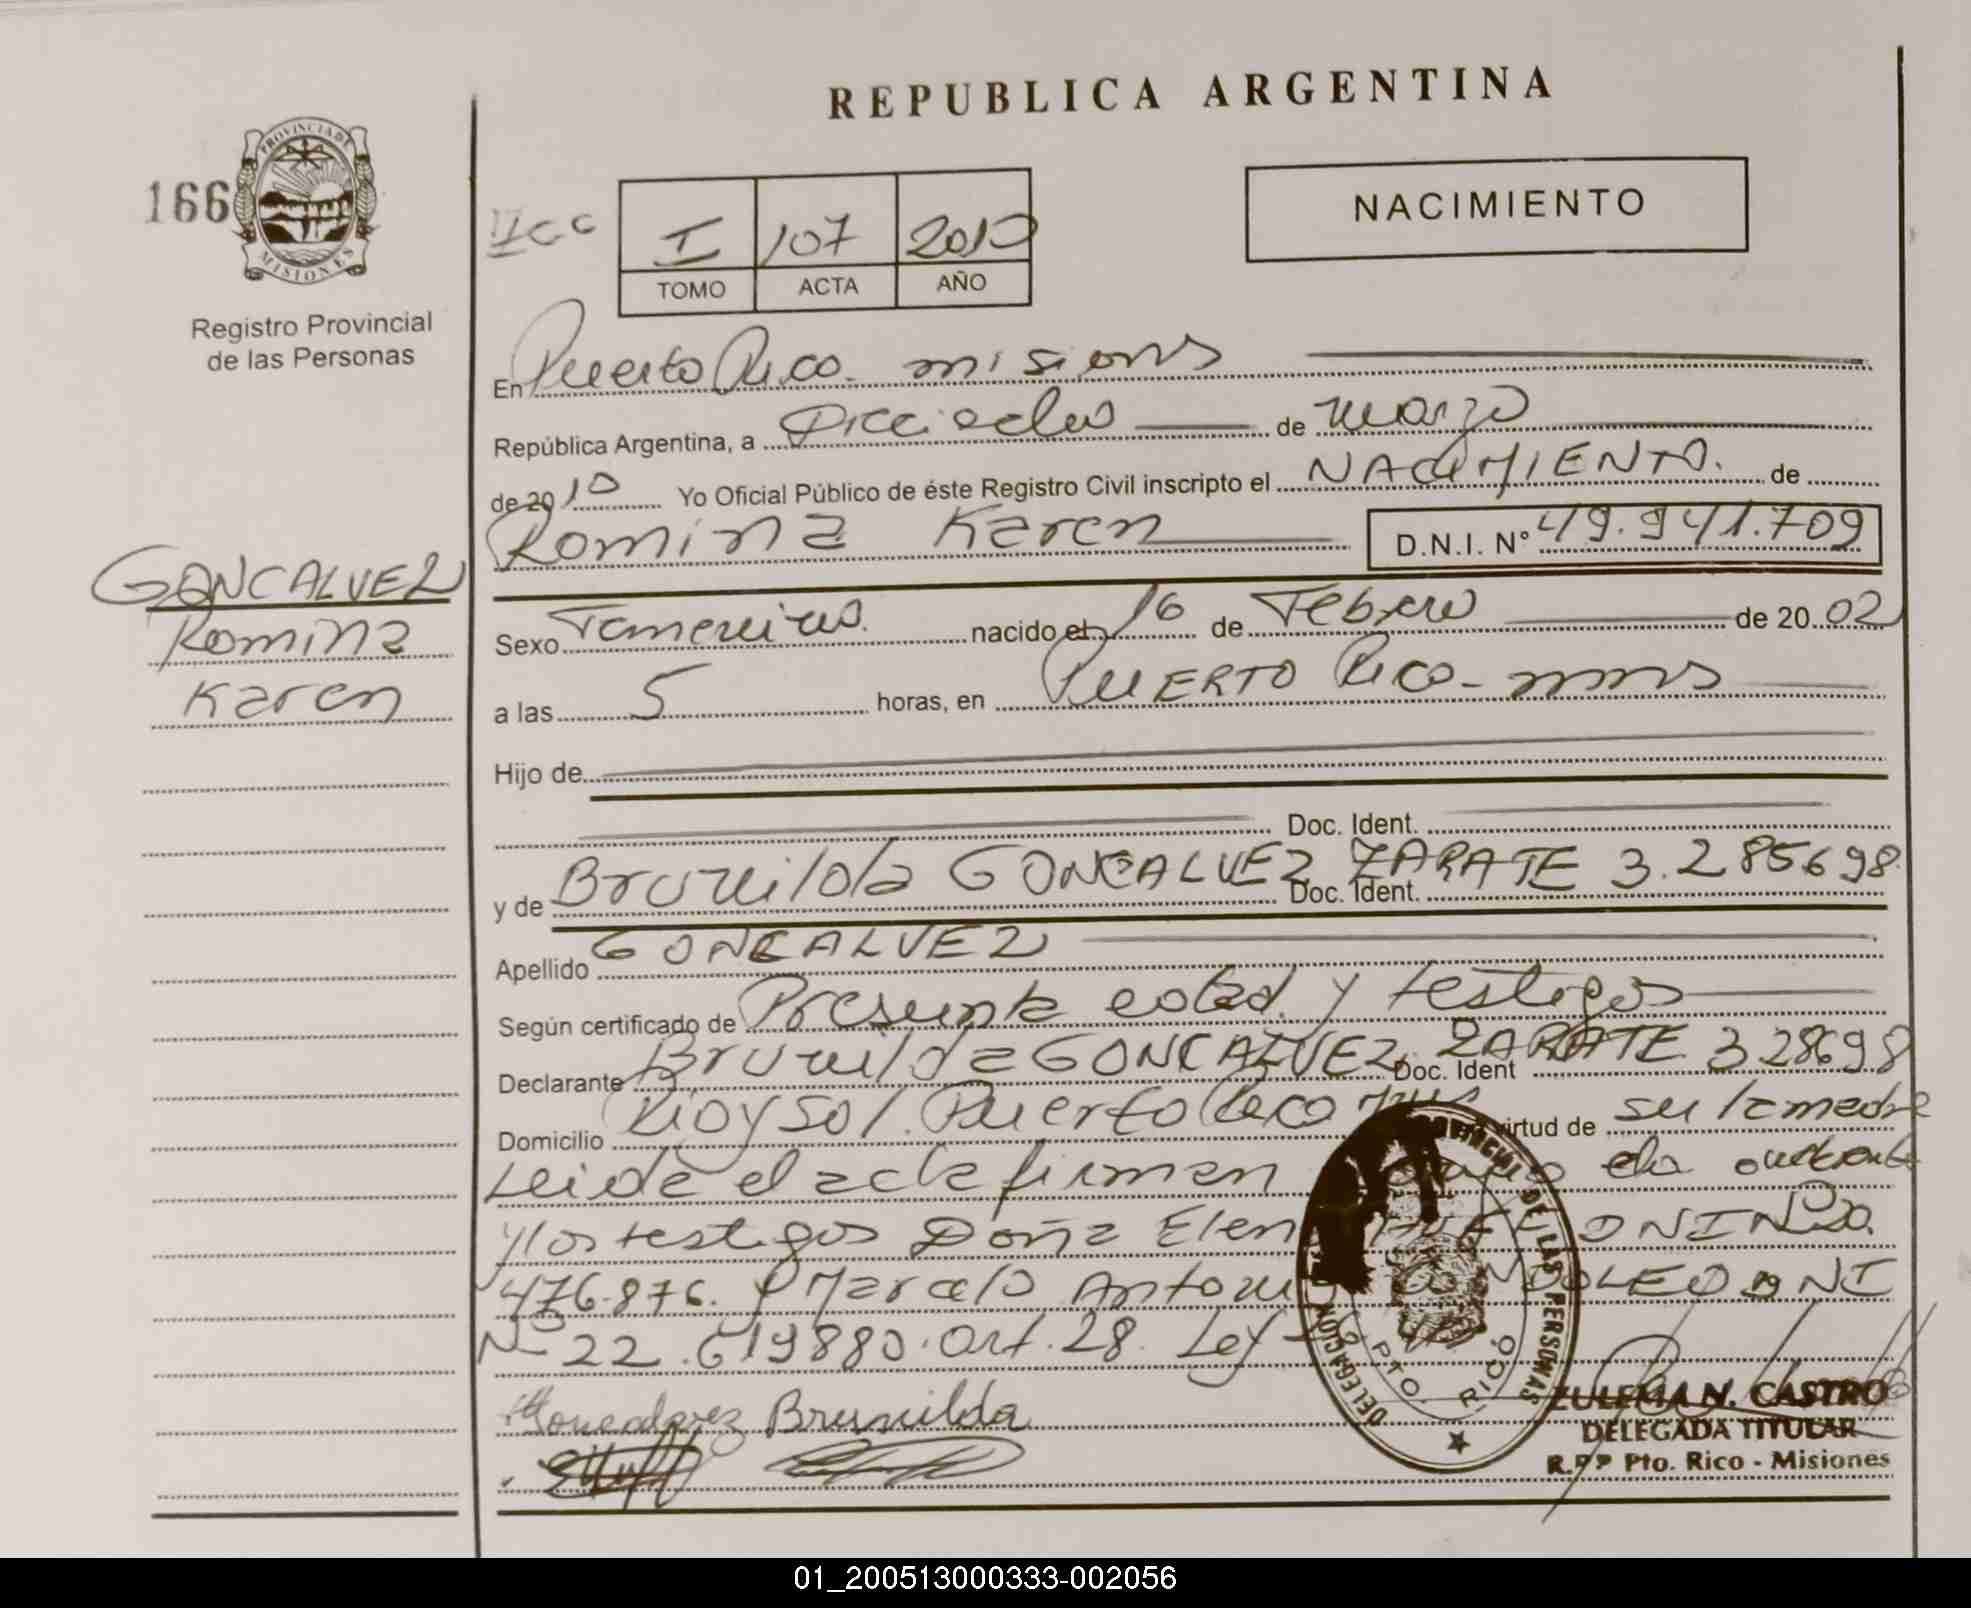 REPUBLICA ARGENTINA
166
PROVINCIA DE
MISIONES
Registro Provincial
de las Personas
I 107 2010
TOMO ACTA AÑO
NACIMIENTO
En Puerto Rico - misions
República Argentina, a Dieciocho de marzo
de 2010 Yo Oficial Público de éste Registro Civil inscripto el NACIMIENTO. de
Romina Karen D.N.I. Nº 49.941.709
GONCALVEZ
Romina
Karen
Sexo Femenino. nacido el 16 de Febrero de 2002
a las 5 horas, en PUERTO Rico - mnns
Hijo de
Doc. Ident.
y de Brunilda GONCALVEZ ZARATE 3.285698
Doc. Ident.
Apellido GONCALVEZ
Según certificado de Presunta edad y testigos
Declarante Brunilda GONCALVEZ ZARATE 328698
Doc. Ident
Domicilio Rioysol. Puerto Rico virtud de su la madre
Leida el acta firman
y los testigos Doña Elen DNI Nº 20.
476.876. y Marcelo Antoni DNI
Nº 22.619880. Art. 28. Ley
Goncalvez Brunilda
DELEGACION PROVINCIAL DE LAS PERSONAS
PTO. RICO
ZULEMA N. CASTRO
DELEGADA TITULAR
R.P.P Pto. Rico - Misiones
01_200513000333-002056